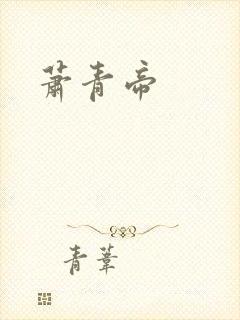 萧青帝
青苇